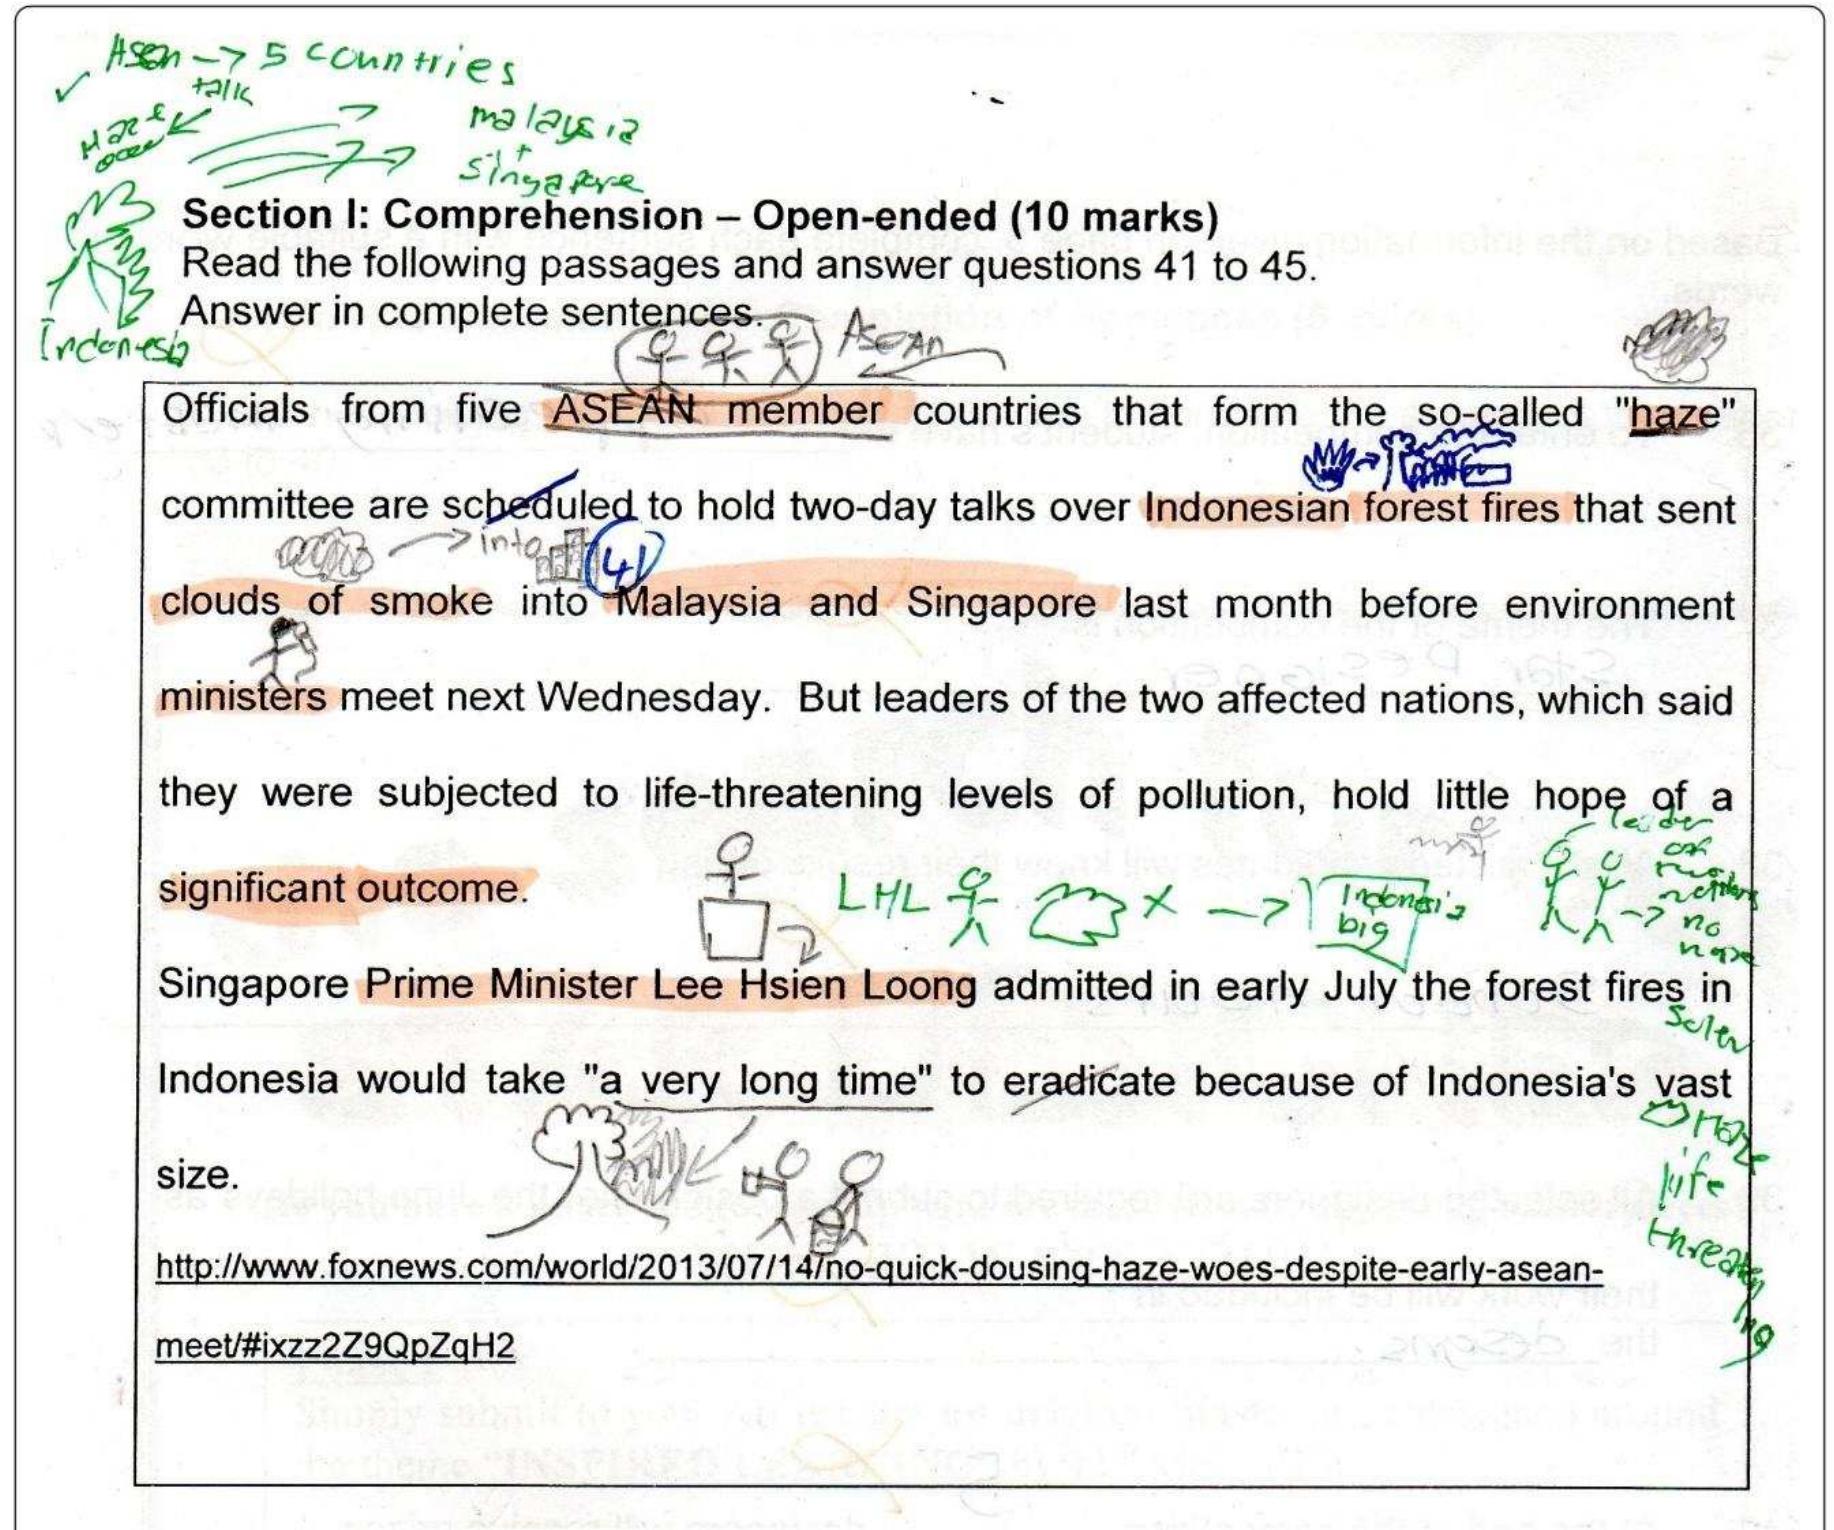 Asean → 5 countries
talk
Haze
malaysia
+
Singapore
Indonesia
Section I: Comprehension – Open-ended (10 marks)
Read the following passages and answer questions 41 to 45.
Answer in complete sentences.
Asean
Officials from five ASEAN member countries that form the so-called "haze"
committee are scheduled to hold two-day talks over Indonesian forest fires that sent
into
41
clouds of smoke into Malaysia and Singapore last month before environment
ministers meet next Wednesday. But leaders of the two affected nations, which said
they were subjected to life-threatening levels of pollution, hold little hope of a
significant outcome.
LHL X → Indonesia
big
leader
of
two
nations
→ no
hope
Singapore Prime Minister Lee Hsien Loong admitted in early July the forest fires in
Indonesia would take "a very long time" to eradicate because of Indonesia's vast
Haze
life
threatening
size.
http://www.foxnews.com/world/2013/07/14/no-quick-dousing-haze-woes-despite-early-asean-
meet/#ixzz2Z9QpZqH2